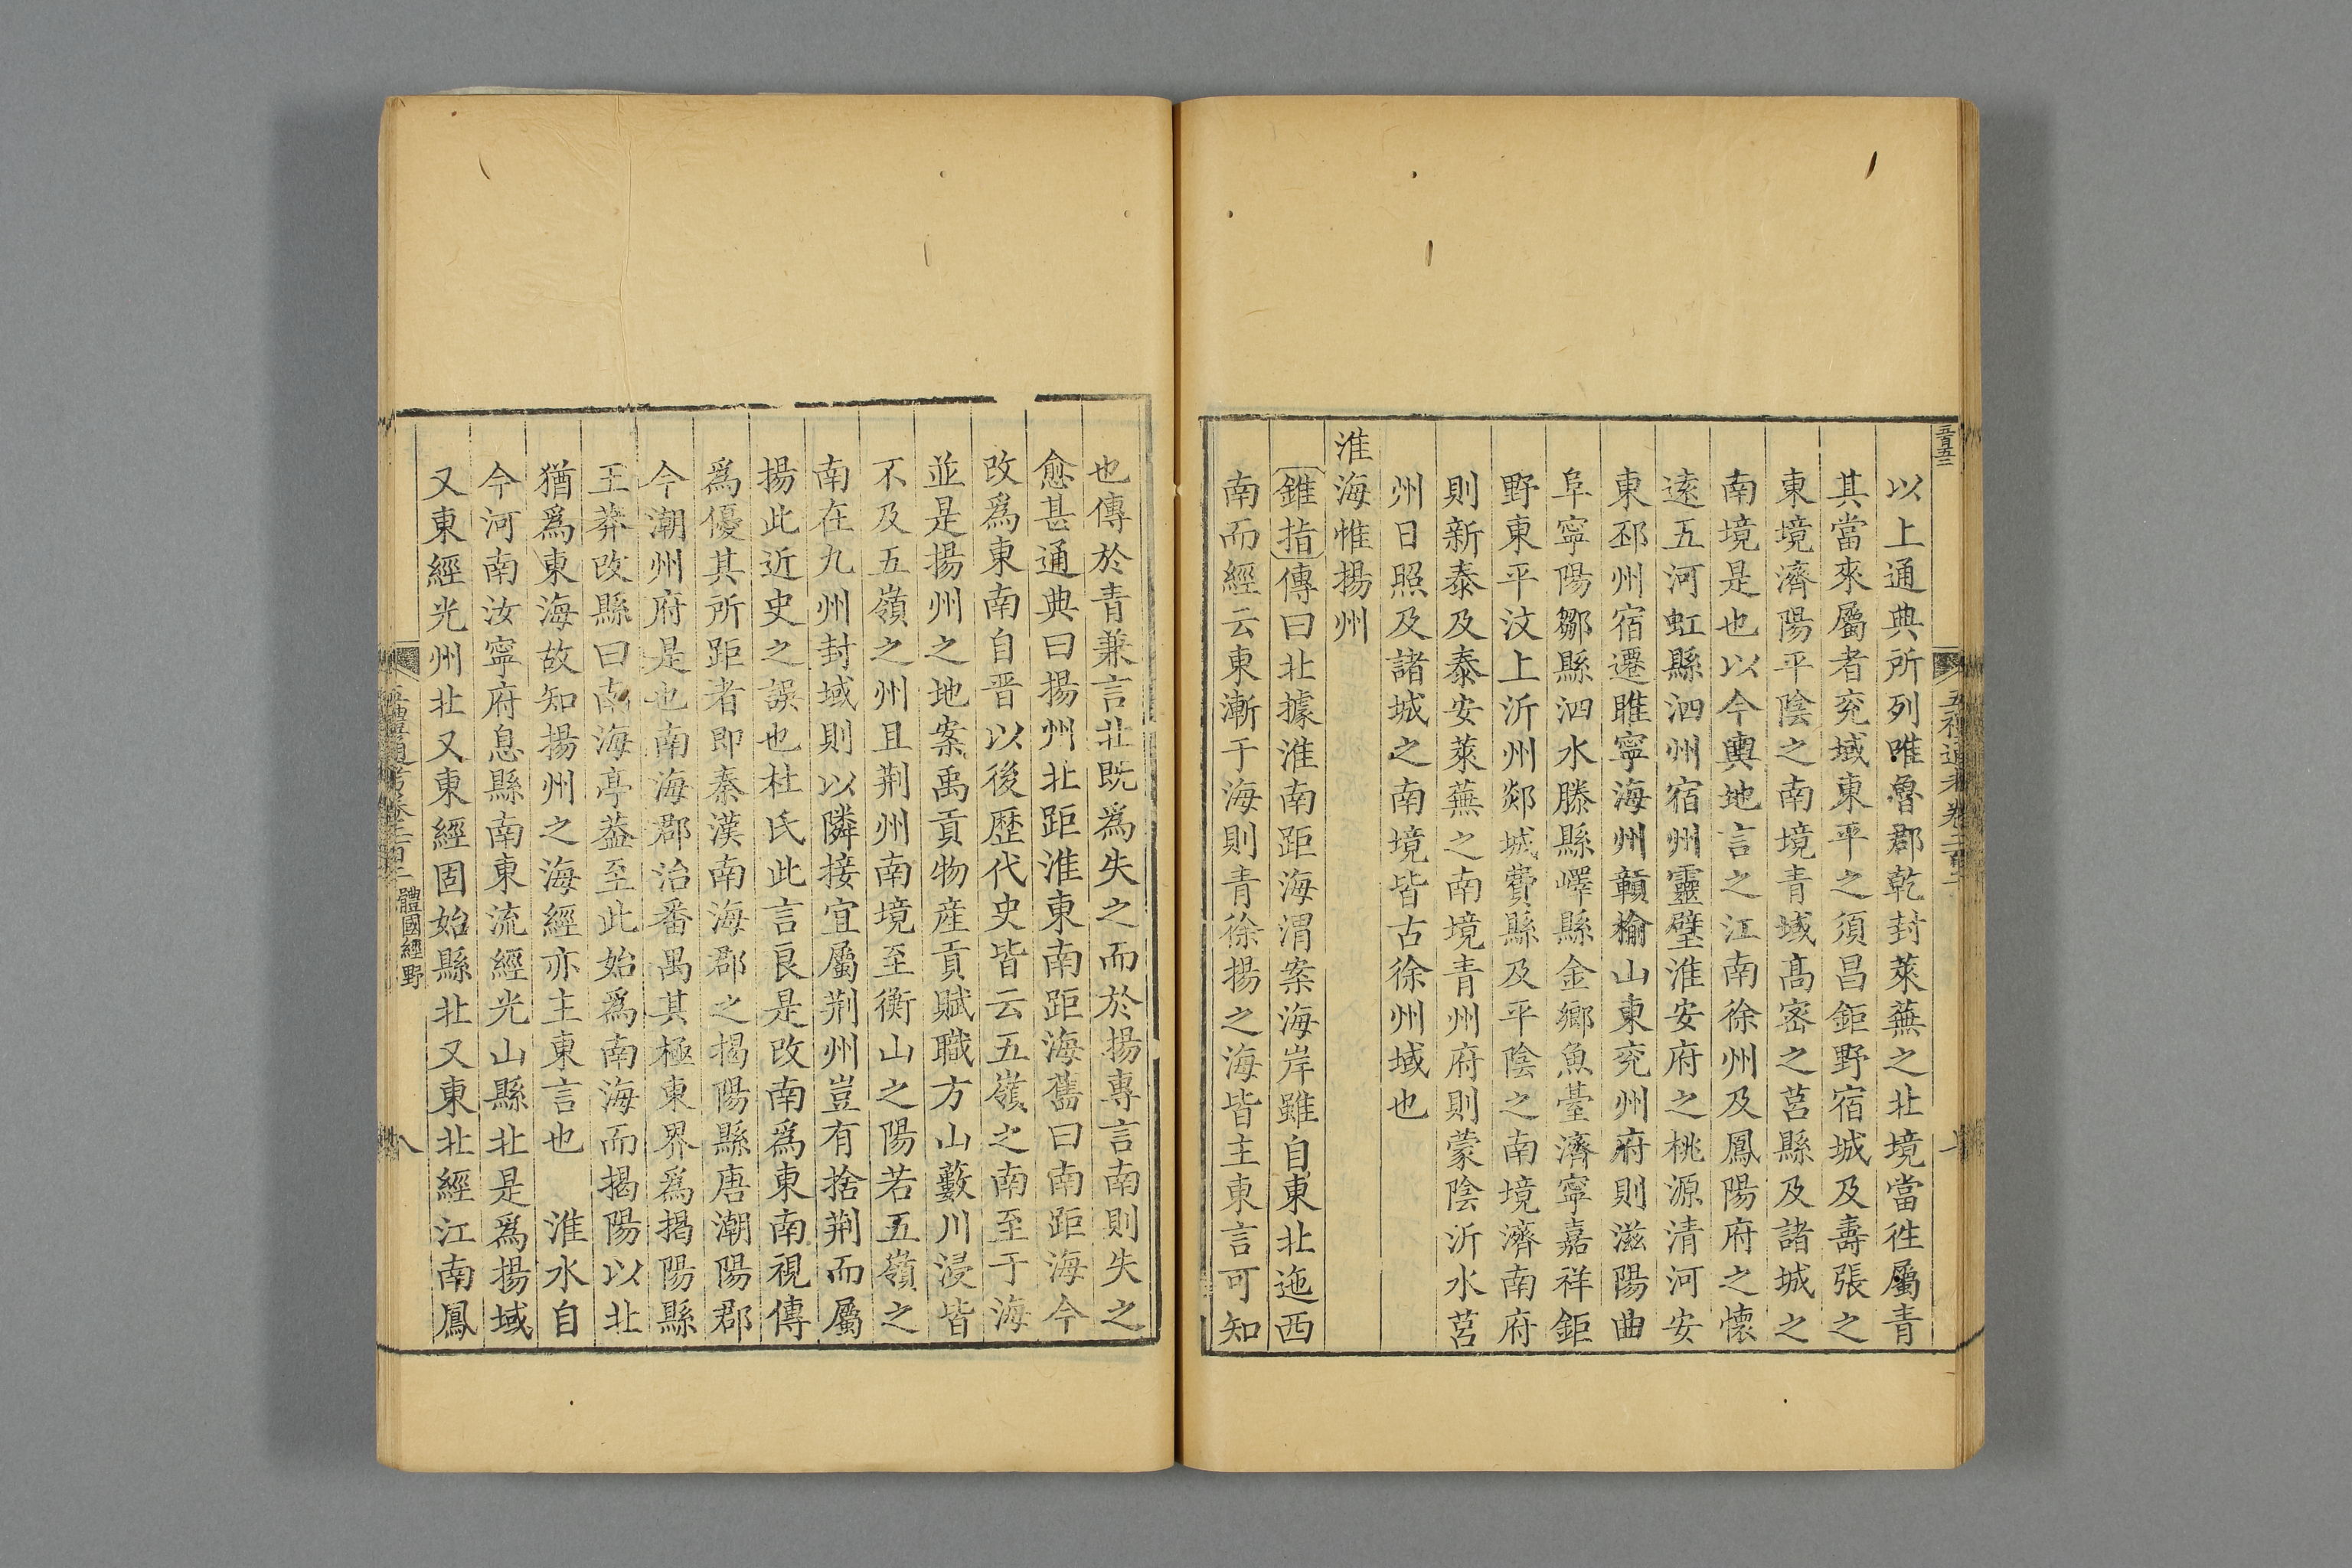 五百五二
以上通典所列唯魯郡乾封萊蕪之北境當徃屬青
其當來屬者兖域東平之須昌鉅野宿城及壽張之
東境濟陽平陰之南境青域髙密之莒縣及諸城之
南境是也以今輿地言之江南徐州及鳳陽府之懷
逺五河虹縣泗州宿州靈璧淮安府之桃源清河安
東邳州宿遷睢寧海州贑榆山東兖州府則滋陽曲
阜寧陽鄒縣泗水滕縣嶧縣金鄉魚臺濟寧嘉祥鉅
野東平汶上沂州郯城費縣及平陰之南境濟南府
則新泰及泰安萊蕪之南境青州府則蒙陰沂水莒
州日照及諸城之南境皆古徐州域也
淮海惟揚州
錐指傳曰北據淮南距海渭案海岸雖自東北迤西
南而經云東漸于海則青徐揚之海皆主東言可知
也傳於青兼言北既爲失之而於揚專言南則失之
愈甚通典曰揚州北距淮東南距海舊曰南距海今
改爲東南自晋以後歴代史皆云五嶺之南至于海
並是揚州之地案禹貢物産貢賦職方山藪川浸皆
不及五嶺之州且荆州南境至衡山之陽若五嶺之
南在九州封域則以隣接宜屬荆州豈有捨荆而屬
揚此近史之誤也杜氏此言良是改南爲東南視傳
爲優其所距者即秦漢南海郡之揭陽縣唐潮陽郡
今潮州府是也南海郡治番禺其極東界爲揭陽縣
王莽改縣曰南海亭葢至此始爲南海而揭陽以北
猶爲東海故知揚州之海經亦主東言也　淮水自
今河南汝寧府息縣南東流經光山縣北是爲揚域
又東經光州北又東經固始縣北又東北經江南鳳
體國經野
八